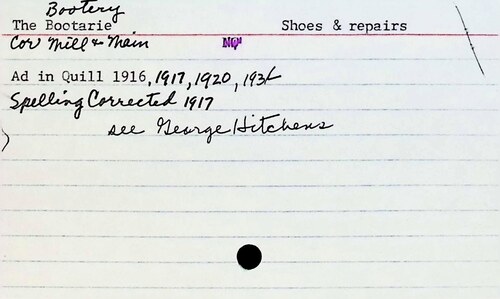 Bootery
The Bootarie Shoes & repairs
Cor Mill & Main NQ
Ad in Quill 1916, 1917, 1920, 1934
Spelling Corrected 1917
see George Hitchens